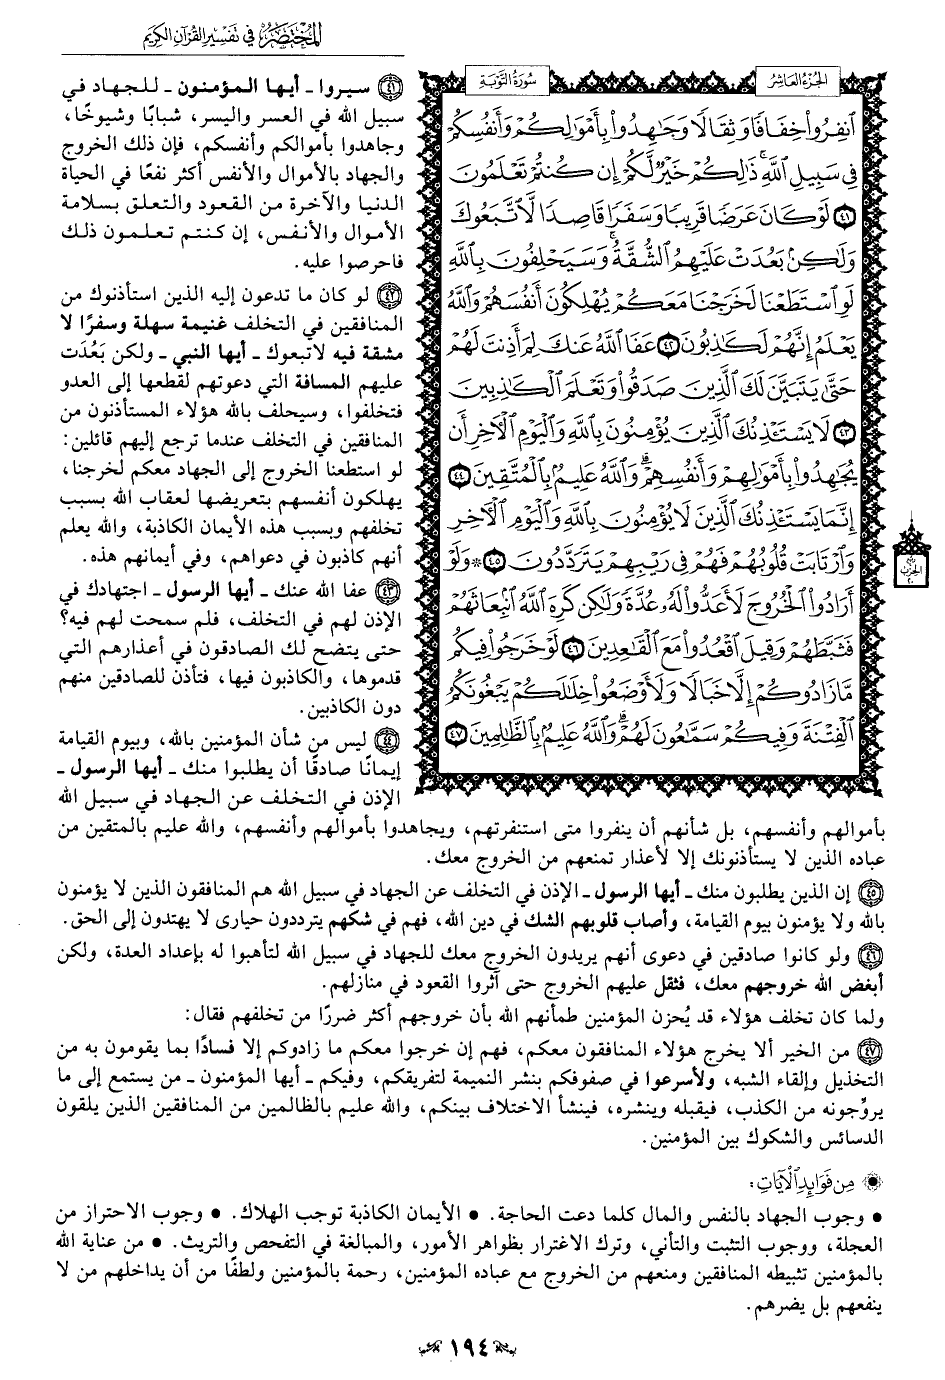 المختصر في تفسير القرآن الكريم
الجزء العاشر
سورة التوبة
انفِرُوا خِفَافًا وَثِقَالًا وَجَاهِدُوا بِأَمْوَالِكُمْ وَأَنفُسِكُمْ
فِي سَبِيلِ اللَّهِ ذَٰلِكُمْ خَيْرٌ لَّكُمْ إِن كُنتُمْ تَعْلَمُونَ
٤١ لَوْ كَانَ عَرَضًا قَرِيبًا وَسَفَرًا قَاصِدًا لَّاتَّبَعُوكَ
وَلَٰكِن بَعُدَتْ عَلَيْهِمُ الشُّقَّةُ وَسَيَحْلِفُونَ بِاللَّهِ
لَوِ اسْتَطَعْنَا لَخَرَجْنَا مَعَكُمْ يُهْلِكُونَ أَنفُسَهُمْ وَاللَّهُ
يَعْلَمُ إِنَّهُمْ لَكَاذِبُونَ ٤٢ عَفَا اللَّهُ عَنكَ لِمَ أَذِنتَ لَهُمْ
حَتَّىٰ يَتَبَيَّنَ لَكَ الَّذِينَ صَدَقُوا وَتَعْلَمَ الْكَاذِبِينَ
٤٣ لَا يَسْتَأْذِنُكَ الَّذِينَ يُؤْمِنُونَ بِاللَّهِ وَالْيَوْمِ الْآخِرِ أَن
يُجَاهِدُوا بِأَمْوَالِهِمْ وَأَنفُسِهِمْ ۗ وَاللَّهُ عَلِيمٌ بِالْمُتَّقِينَ ٤٤
إِنَّمَا يَسْتَأْذِنُكَ الَّذِينَ لَا يُؤْمِنُونَ بِاللَّهِ وَالْيَوْمِ الْآخِرِ
وَارْتَابَتْ قُلُوبُهُمْ فَهُمْ فِي رَيْبِهِمْ يَتَرَدَّدُونَ ٤٥ ۞ وَلَوْ
أَرَادُوا الْخُرُوجَ لَأَعَدُّوا لَهُ عُدَّةً وَلَٰكِن كَرِهَ اللَّهُ انبِعَاثَهُمْ
فَثَبَّطَهُمْ وَقِيلَ اقْعُدُوا مَعَ الْقَاعِدِينَ ٤٦ لَوْ خَرَجُوا فِيكُم
مَّا زَادُوكُمْ إِلَّا خَبَالًا وَلَأَوْضَعُوا خِلَالَكُمْ يَبْغُونَكُمُ
الْفِتْنَةَ وَفِيكُمْ سَمَّاعُونَ لَهُمْ ۗ وَاللَّهُ عَلِيمٌ بِالظَّالِمِينَ ٤٧
٤١ سيروا ـ أيها المؤمنون ـ للجهاد في
سبيل الله في العسر واليسر، شبابًا وشيوخًا،
وجاهدوا بأموالكم وأنفسكم، فإن ذلك الخروج
والجهاد بالأموال والأنفس أكثر نفعًا في الحياة
الدنيا والآخرة من القعود والتعلق بسلامة
الأموال والأنفس، إن كنتم تعلمون ذلك
فاحرصوا عليه.
٤٢ لو كان ما تدعون إليه الذين استأذنوك من
المنافقين في التخلف غنيمة سهلة وسفرًا لا
مشقة فيه لاتبعوك ـ أيها النبي ـ ولكن بَعُدَت
عليهم المسافة التي دعوتهم لقطعها إلى العدو
فتخلفوا، وسيحلف بالله هؤلاء المستأذنون من
المنافقين في التخلف عندما ترجع إليهم قائلين:
لو استطعنا الخروج إلى الجهاد معكم لخرجنا،
يهلكون أنفسهم بتعريضها لعقاب الله بسبب
تخلفهم وبسبب هذه الأيمان الكاذبة، والله يعلم
أنهم كاذبون في دعواهم، وفي أيمانهم هذه.
٤٣ عفا الله عنك ـ أيها الرسول ـ اجتهادك في
الإذن لهم في التخلف، فلم سمحت لهم فيه؟
حتى يتضح لك الصادقون في أعذارهم التي
قدموها، والكاذبون فيها، فتأذن للصادقين منهم
دون الكاذبين.
٤٤ ليس من شأن المؤمنين بالله، وبيوم القيامة
إيمانًا صادقًا أن يطلبوا منك ـ أيها الرسول ـ
الإذن في التخلف عن الجهاد في سبيل الله
بأموالهم وأنفسهم، بل شأنهم أن ينفروا متى استنفرتهم، ويجاهدوا بأموالهم وأنفسهم، والله عليم بالمتقين من
عباده الذين لا يستأذنونك إلا لأعذار تمنعهم من الخروج معك.
٤٥ إن الذين يطلبون منك ـ أيها الرسول ـ الإذن في التخلف عن الجهاد في سبيل الله هم المنافقون الذين لا يؤمنون
بالله ولا يؤمنون بيوم القيامة، وأصاب قلوبهم الشك في دين الله، فهم في شكهم يترددون حيارى لا يهتدون إلى الحق.
٤٦ ولو كانوا صادقين في دعوى أنهم يريدون الخروج معك للجهاد في سبيل الله لتأهبوا له بإعداد العدة، ولكن
أبغض الله خروجهم معك، فثقل عليهم الخروج حتى آثروا القعود في منازلهم.
ولما كان تخلف هؤلاء قد يُحزن المؤمنين طمأنهم الله بأن خروجهم أكثر ضررًا من تخلفهم فقال:
٤٧ من الخير ألا يخرج هؤلاء المنافقون معكم، فهم إن خرجوا معكم ما زادوكم إلا فسادًا بما يقومون به من
التخذيل وإلقاء الشبه، ولأسرعوا في صفوفكم بنشر النميمة لتفريقكم، وفيكم ـ أيها المؤمنون ـ من يستمع إلى ما
يروِّجونه من الكذب، فيقبله وينشره، فينشأ الاختلاف بينكم، والله عليم بالظالمين من المنافقين الذين يلقون
الدسائس والشكوك بين المؤمنين.
من فوائد الآيات:
• وجوب الجهاد بالنفس والمال كلما دعت الحاجة. • الأيمان الكاذبة توجب الهلاك. • وجوب الاحتراز من
العجلة، ووجوب التثبت والتأني، وترك الاغترار بظواهر الأمور، والمبالغة في التفحص والتريث. • من عناية الله
بالمؤمنين تثبيطه المنافقين ومنعهم من الخروج مع عباده المؤمنين، رحمة بالمؤمنين ولطفًا من أن يداخلهم من لا
ينفعهم بل يضرهم.
١٩٤